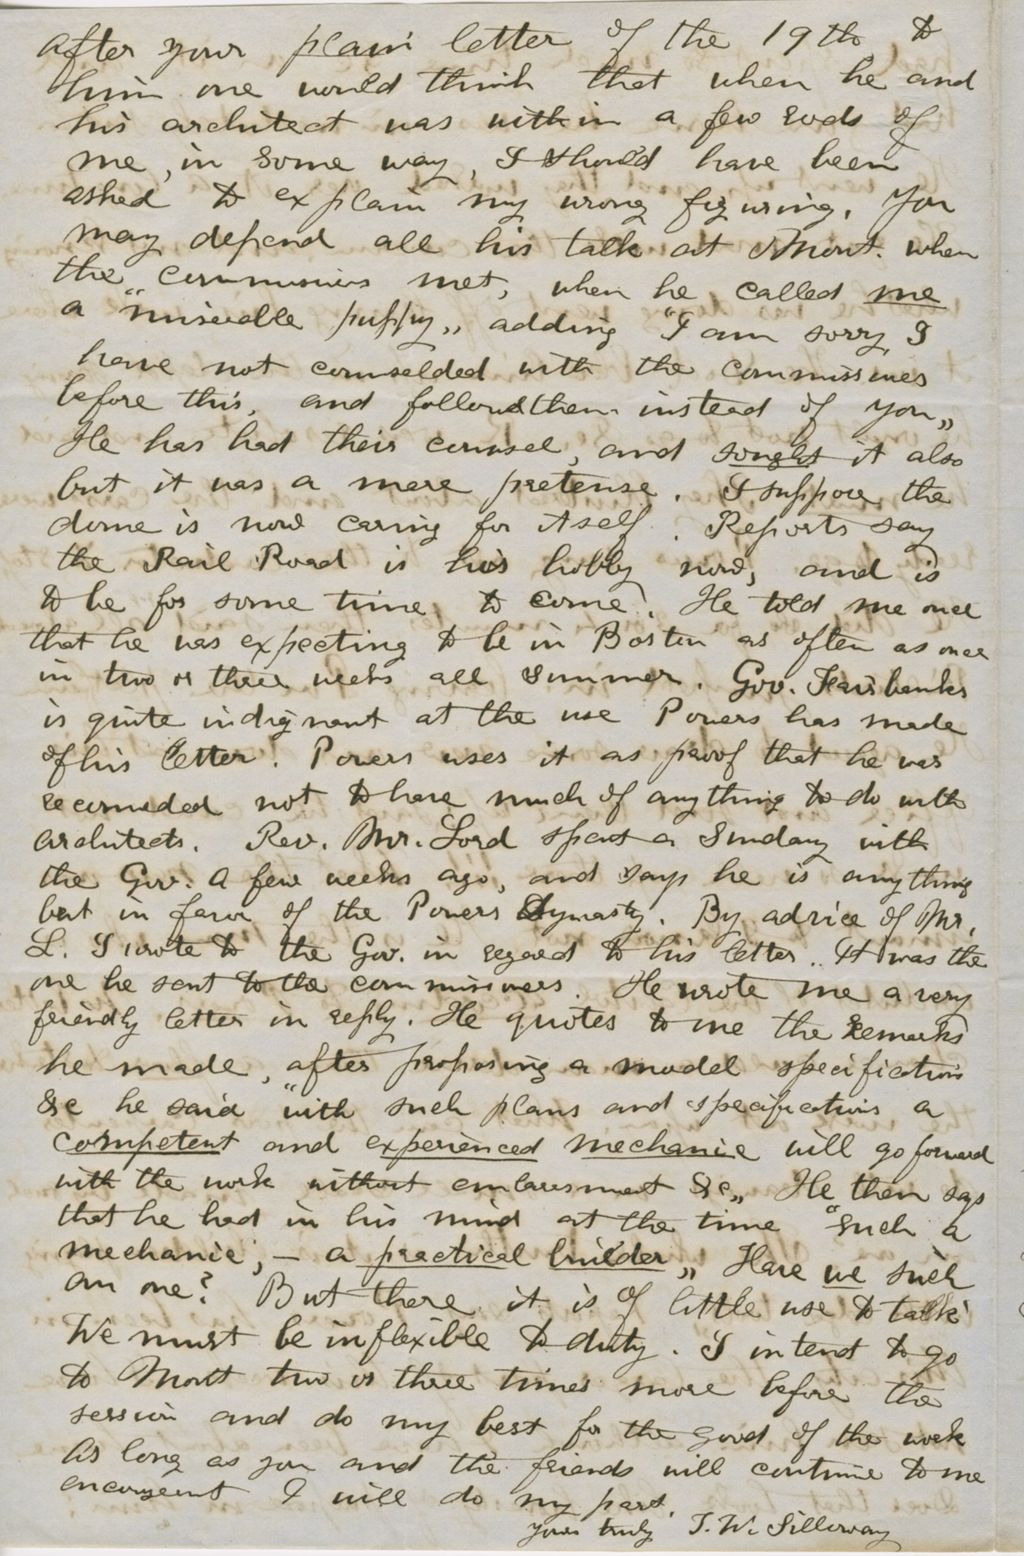 after your plain letter of the 19th, to
him one would think that when he and
his architect was within a few rods of
me, in some way, I should have been
asked to explain my wrong figuring. You
may depend all his talk at Mont. when
the commissions met, when he called me
a "miserable puppy„ adding "I am sorry I
have not counselded with the commissines
before this, and followed them instead of you„
He has had their counsel, and sought it also
but it was a mere pretense. I suppose the
dome is now caring for itself. Reports say
the Rail Road is his hobby now, and is
to be for some time to come. He told me once
that he was expecting to be in Boston as often as once
in two or three weeks all summer. Gov. Fairbanks
is quite indignant at the use Powers has made
of his letter. Powers uses it as proof that he was
recomended not to have much of anything to do with
architects. Rev. Mr. Lord spent a Sunday with
the Gov. a few weeks ago, and says he is anything
but in favor of the Powers Dynasty. By advice of Mr.
L. I wrote to the Gov. in regard to his letter. It was the
one he sent to the commissiners. He wrote me a very
friendly letter in reply. He quotes to me the remarks
he made, after proposing a model specification
&c he said "with such plans and specifications a
competent and experienced mechanic will go forward
with the work without embaresment &c„ He then says
that he had in his mind at the time "such a
mechanic, – a practical builder„ Have we such
an one? But there it is of little use to talk
We must be inflexible to duty. I intend to go
to Mont two or three times more before the
session and do my best for the good of the work
As long as you and the friends will continue to me
encouragent I will do my part.
Yours truly T. W. Silloway